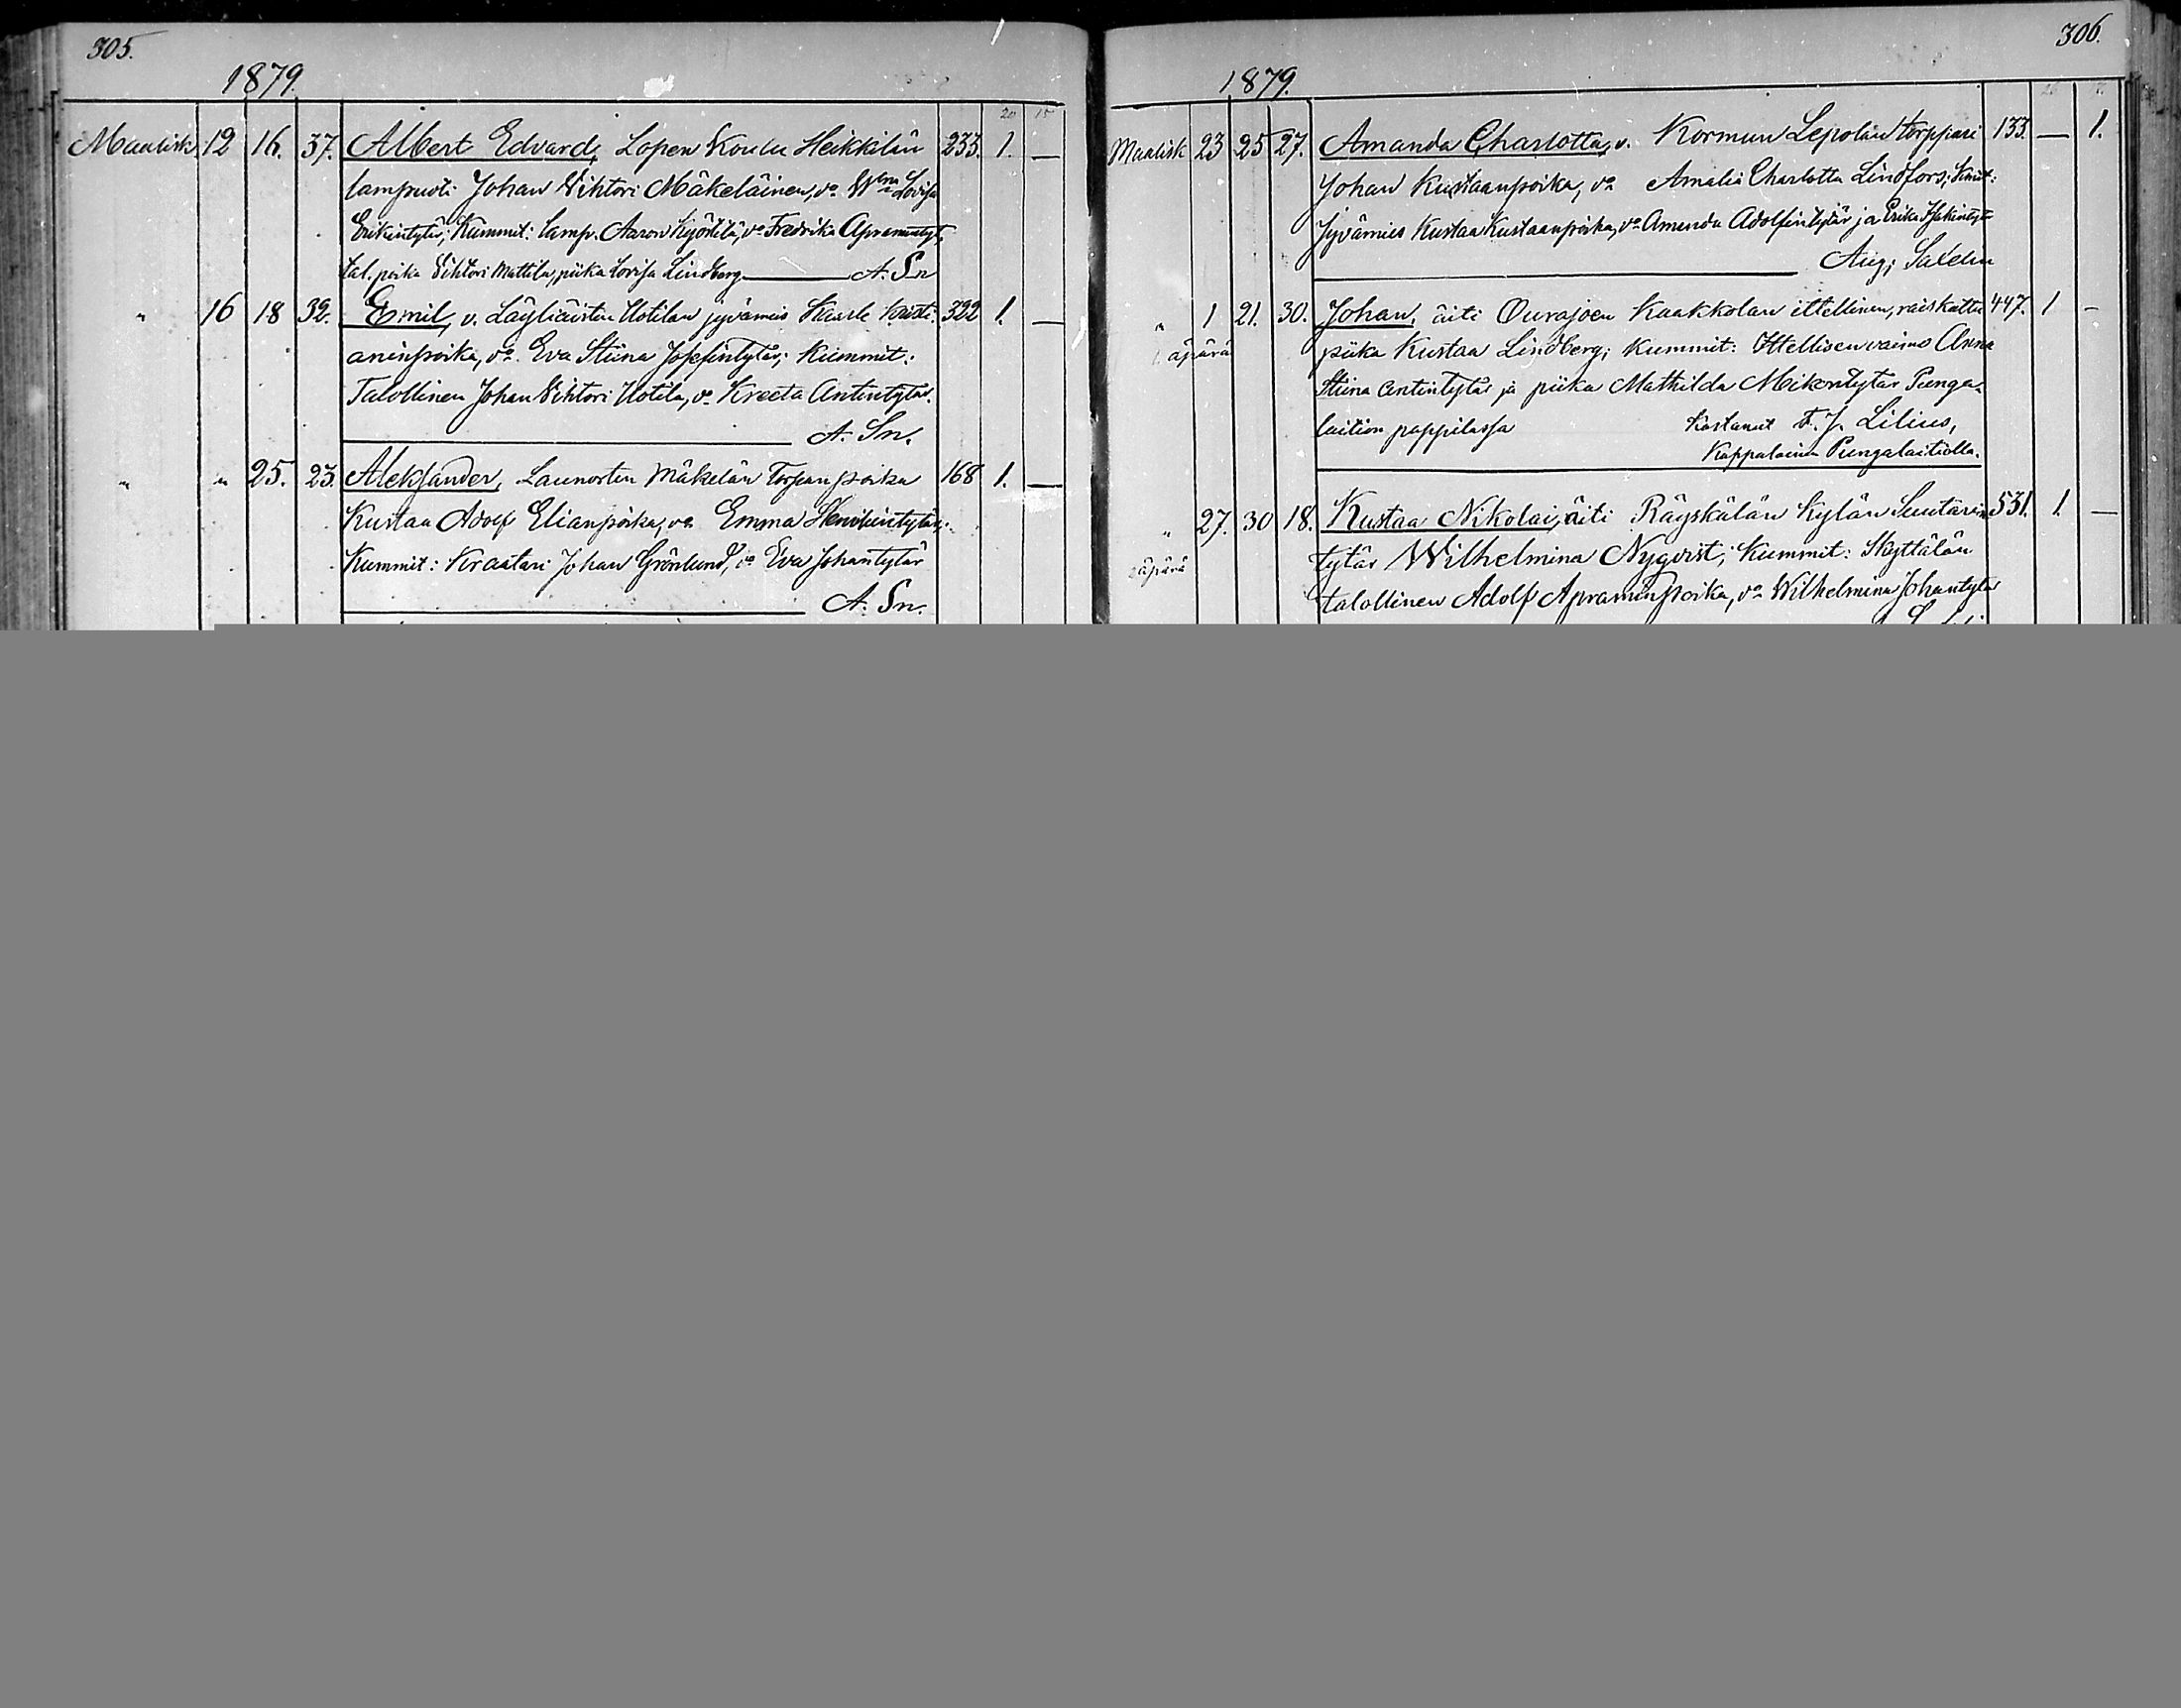 305.
1879.
Maalisk. 12 16. 37. Albert Edvard, Lopen Koulu Heikkilän 233. 1. —
lampuoti Johan Vihtori Mäkeläinen, va Wm̅a Lovisa
Erikintytär; Kummit: Lamp. Aaron Kyöstilä, va Fredrika Apramintyt,
tal. poika Vihtori Mattila, piika Lovisa Lindberg — A. Sn
" 16 18 32. Emil, v. Läyliäisten Uotilan jyvämies Kaarle Kristi- 322 1. —
aninpoika, va Eva Stiina Josefintytär; Kummit:
Talollinen Johan Vihtori Uotila, va Kreeta Antintytär.
A. Sn.
" " 25. 23. Aleksander, Launosten Mäkelän Torpan poika 168 1. —
Kustaa Adolf Elianpoika, va Emma Henrikintytär;
Kummit: Kraatari Johan Grönlund, va Eva Johantytär
A. Sn.
306.
1879.
Maalisk 23 25 27. Amanda Charlotta, v. Kormun Lepolan torppari 133. — 1.
Johan Kustaanpoika, va Amalia Charlotta Lindfors; Kmit:
Jyvämies Kustaa Kustaanpoika, va Amanda Adolfintytär ja Erika
Aug;
" 1 21. 30. Johan, äiti Ourajoen Kaakkolan ittellinen, raiskattu 447. 1 –
äpärä piika Kustaa Lindberg; Kummit: Ittellisen vaimo Anna
Stiina Antintytär ja piika Mathilda Mikontytär Punga-
laition pappilassa kastanut F. J. Lilius,
Kappalainen Pungalaitiolla.
" 27. 30 18. Kustaa Nikolai, äiti Räyskälän Kylän Suutarin 531. 1. —
äpärä tytär Wilhelmina Nyqvist; Kummit: Skyttälän
talollinen Adolf Apraminpoika, va Wilhelmina Johantytär